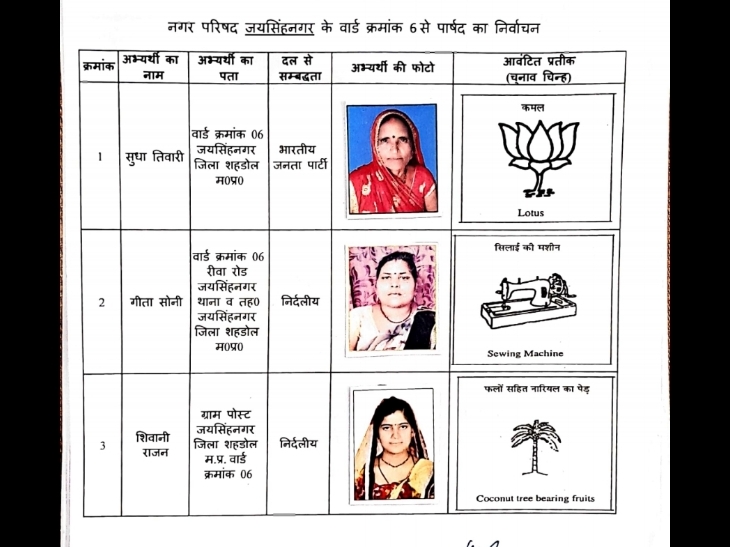 नगर परिषद जयसिंहनगर के वार्ड क्रमांक 6 से पार्षद का निर्वाचन
क्रमांक
अभ्यर्थी का
नाम
अभ्यर्थी का
पता
दल से
सम्बद्धता
अभ्यर्थी की फोटो
आवंटित प्रतीक
(चुनाव चिन्ह)
1
सुधा तिवारी
वार्ड क्रमांक 06
जयसिंहनगर
जिला शहडोल
म0प्र0
भारतीय
जनता पार्टी
कमल
Lotus
2
गीता सोनी
वार्ड क्रमांक 06
रीवा रोड
जयसिंहनगर
थाना व तह0
जयसिंहनगर
जिला शहडोल
म0प्र0
निर्दलीय
सिलाई की मशीन
Sewing Machine
3
शिवानी
राजन
ग्राम पोस्ट
जयसिंहनगर
जिला शहडोल
म.प्र. वार्ड
क्रमांक 06
निर्दलीय
फलों सहित नारियल का पेड़
Coconut tree bearing fruits